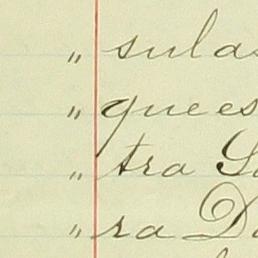 " sulas
" quees
" tra
" ra